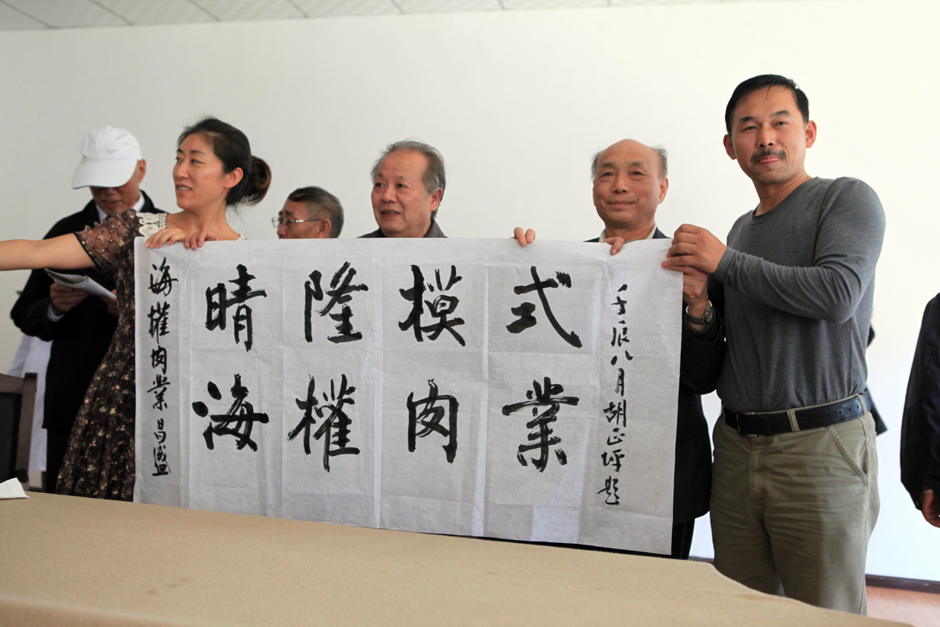 海權肉業昌盛
晴隆模式
海權肉業
壬辰八月胡正坪題